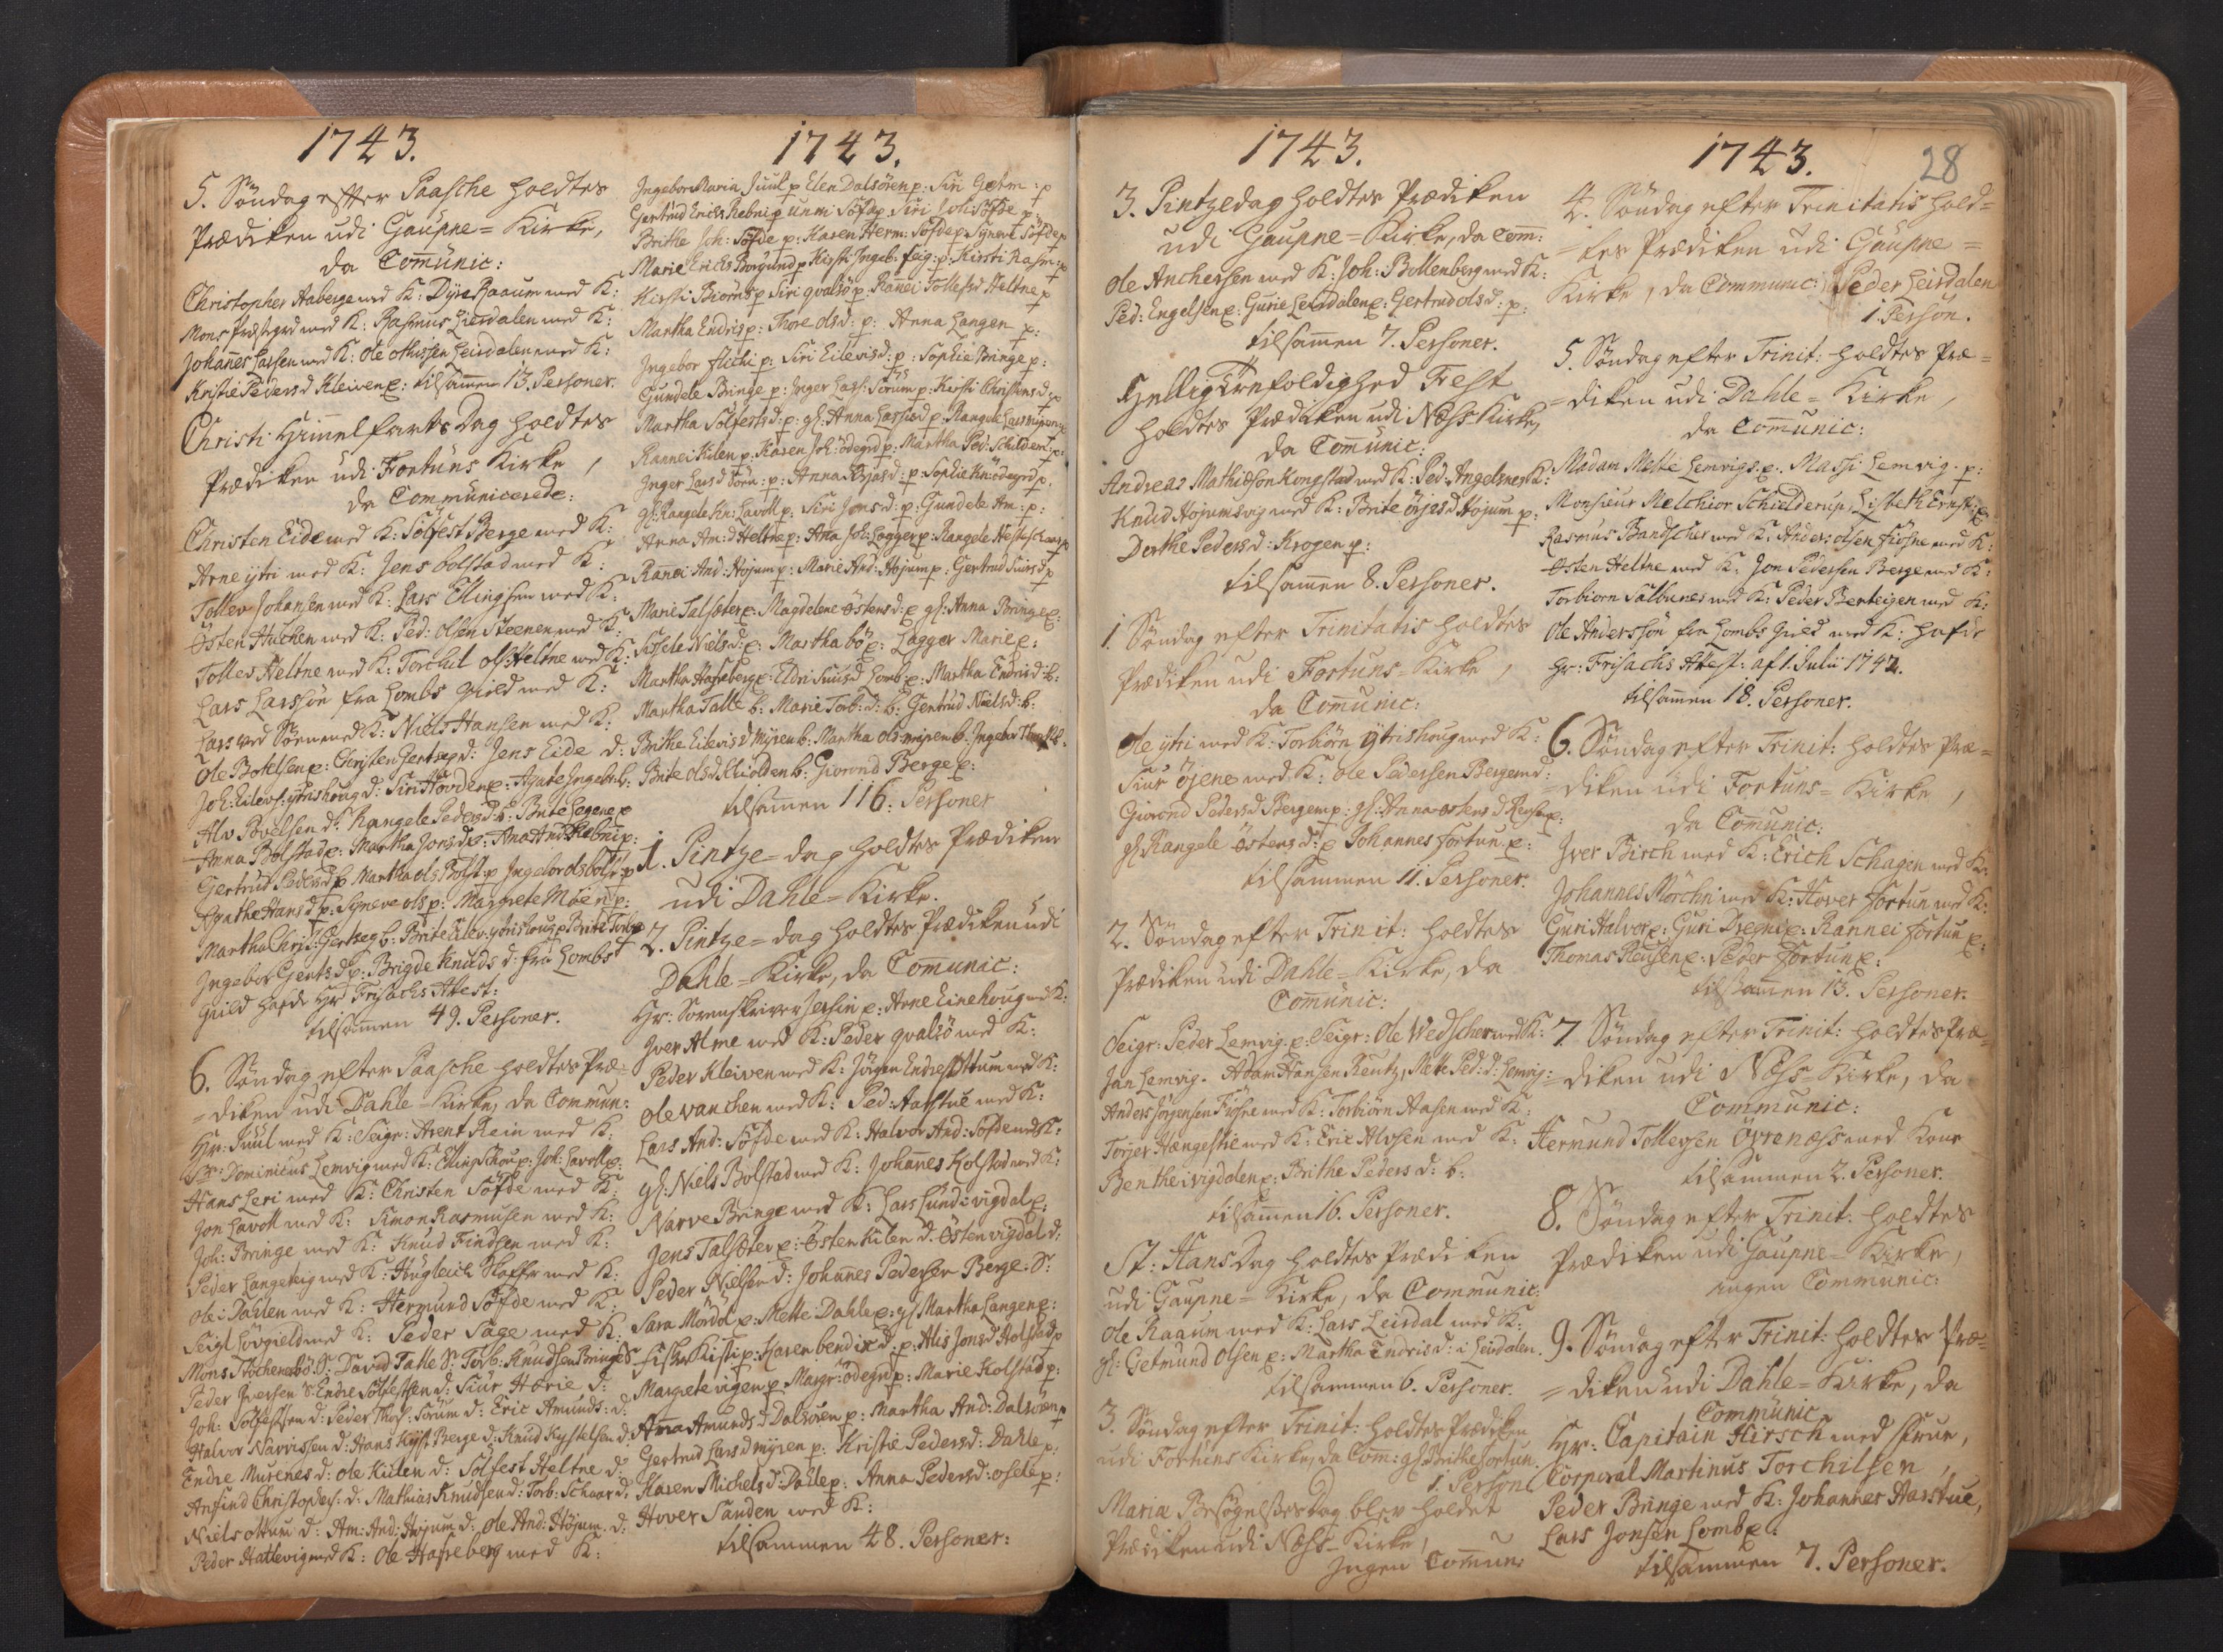 1743.
5. Søndag efter Paasche holdtes
Prædiken udi Gaupne= Kirke,
da Comunic:
Christopher Aaberge med K: Dyre Raaum med K:
Mons Præstegrd med K: Rasmus Liesdalen med K:
Johannes Larsen med K: Ole Leirdalen med K:
Kristie Pedersd Kleiven p: tilsamen 13. Personer.
Christi Himmelfarts Dag holdtes
Prædiken udi Fortuns Kirke,
da Communicerede:
Christen Eide med K: Solfest Berge med K:
Arne ytri med K: Jens bolstad med K:
Tollev Johansen med K: Lars Ellingsen med K:
Østen Hauchen med K: Ped: Olsen Steenen med K:
Tollev Heltne med K: Torchil Ols: Heltne med K:
Lars Larsøn fra Lombs Gield med K:
Lars ved Søen med K: Niels Hansen med K:
Ole Botelsen p: Christen Gertseg d: Jens Eide d:
Joh: Eilevs: ytrishoug d: Siri Hovden p: Agate Ingebr: b:
Alv Povelsen d: Rangele Pedersd b: Brite Hegene p
Anna Bolstad p: Martha Jonsd p: Ana And: Rebni p:
Gertrud Pedersd p Martha Ols Bolst: p Ingebor Ols bolst: p
Agathe Hansd p: Synneve Ols p: Margrete Moen p:
Martha Christ: Gertseg b: Brite Eilev: ytrishoug p Brite Torb: p
Ingebor Gertsd p: Brigde Knuds d: fra Lombs
Gield hafde Hr Frisachs Attest:
tilsamen 49. Personer.
6. Søndag efter Paasche holdtes Præ=
=diken udi Dahle=Kirke, da Commun:
Hr: Juul med K: Seigr: Arent Rein med K:
Sr: Dominicus Lemvig med K: Elling Schou p: Joh: Lavoll p:
Hans Leri med K: Christen Søfde med K:
Jon Lavoll med K: Simon Rasmusen med K:
Joh: Bringe med K: Knud Findsen med K:
Peder Langeteig med K: Hugleich Kloffer med K:
Ole i Dahlen med K: Hermund Søfde med K:
Seigl Høvgield med K: Peder Sage med K:
Mons Stochenesbø S: David Talle S: Torb: Knudsen Bringe S
Peder Iversen S: Endre Solfestsen d: Siur Horie d:
Joh: Solfestsen d: Peder Thos: Sorum d: Eric Amunds: d:
Halvor Narvissen d: Hans Kyst Berge d: Knud Kystelsen d:
Endre Murenes d: Ole Kiilen d: Solfest Heltne d:
Anfind Christophers: d: Mathias Knudsen d: Torb: Schaar d:
Niels Ottum d: Am: And: Højum d: Ole And: Højum d:
Peder Hattevig med K: Ole Hasseberg med K:
1743.
Ingebor Maria Juul p Elen Dalsøren p: Siri Gutm: p
Gertrud Erichs Rebni p Unni Søfde p Siri Joh: Søfde p
Brithe Joh: Søfde p: Karen Herm: Søfde p Synevt Søfde p
Marie Erichs Borgund p Kirsti Ingeb: feig: p: Kirsti Rasm: p
Kirsti Biørns p Siri Qvalsø p: Ranei Tollefsd Heltne p
Martha Endris p: Thore Olsd: p: Anna Langen p:
Ingebor flichi p: Siri Eilevisd: p: Sophie Bringe p:
Gundele Bringe p: Inger Lars: Sorum p: Kirsti Christensd: p
Martha Solfestsd: p: gl: Anna Larsisd p: Rangele
Rannei Kilen p: Karen Joh: ødegrd p: Martha Ped: Schilderi: p:
Inger Larsd Søen: p: Anna p: Sophie Kn: ødegrd p:
gl: Rangele Lavoll p: Siri Jonsd: p: Gundele Am: p:
Anna Am: d Heltne p: Ana Joh: Logger p: Rangele
Rannei And: Højum p: Marie And: Højum p: Gertrud Siursd p
Marie Talsæter p: Magdelene Østensd: p gl: Anna Bringe p:
Sissele Nielsd: p: Martha bø p: Lagger Marie p:
Martha Hasseberg p: Eldri Siursd Lomb p: Martha Endrisd b:
Martha Talle b: Marie Torb: d: b: Gertrud Nielsd: b:
Brithe Eilevisd Myren b: Martha Ols myren b: Ingebor
Brite Olsd Skiolden b: Giorond Berge p:
tilsamen 116: Personer
1. Pintze=dag holdtes Prædiken
udi Dahle=Kirke.
2. Pintze=dag holdtes Prædiken udi
Dahle=Kirke, da Comunic:
Hr: Sorenskriver Jersin p: Arne Einehoug med K:
Iver Alme med K: Peder Qvalsø med K:
Peder Kleiven med K: Jørgen Endres Ottum med K:
Ole Vanchen med K: Ped: Aarstue med K:
Lars And: Søfde med K: Halvor And: Søfde med K:
gl: Niels Bolstad med K: Johannes Kolstad med K:
Narve Bringe med K: Lars Sund: Vigdal p:
Jens Talsæter p: Østen Kilen d: Østen Vigdal d:
Peder Nielsen d: Johannes Pedersen Berge: S:
Sara Mørdøl p: Mette Dahle p: gl Martha Langen p:
Fisker Kisti p: Karen bendix d: p: Alis Jonsd Kolstad p
Margrete Vigen p Margr: ødegrd p: Marie Kolstad p:
Anna Amunds d Dalsøren p: Martha And: Dalsøren p
Gertrud Larsd myren p: Kristie Pedersd: Dahle p:
Karen Michelsd: Dahle p: Anna Pedersd: Ofele p:
Hover Sanden med K:
tilsammen 48. Personer:
1743.
3. Pintzedag holdtes Prædiken
udi Gaupne=Kirke, da Com:
Ole Anchersen med K: Joh: Bollenberg med K:
Ped: Engelsen p: Gurie Leirdalen p: Gertrud Olsd: p:
tilsamen 7. Personer.
Hellig Trefoldighed Fest
holdtes Prædiken udi Næss Kirke,
da Comunic:
Andreas Mathison Kongstad med K: Ped: Angelsnes K:
Knud Højumsvig med K: Brite Ørjesd Højum p:
Dorthe Pedersd: Krogen p:
tilsamen 8. Personer.
1. Søndag efter Trinitatis holdtes
Prædiken udi Fortuns=Kirke,
da Comunic:
Ole ytri med K: Torbiørn Ytrishoug med K:
Siur Øjene med K: Ole Pedersen Bergem d:
Giorond Pedersd Bergem p: gl: Anna Østens d Reusen p:
gl Rangele Østensd: p Johannes Fortun p:
tilsammen 11. Personer.
2. Søndag efter Trinit: holdtes
Prædiken udi Dahle=Kirke, da
Comunic:
Seigr: Peder Lemvig p: Seigr: Ole Wedscher med K:
Jan Lemvig. Adam Hansen Reutz, Mette Ped: d: Lemvig:
Anders Jørgensen Fiøsne med K: Torbiørn Aasen med K:
Torjer Hængeslie med K: Eric Alvsen med K:
Benthe i Vigdalen p: Brithe Peders d: b:
tilsamen 16. Personer.
St: Hans Dag holdtes Prædiken
udi Gaupne=Kirke, da Communic:
Ole Raaum med K: Lars Leirdal med K:
gl: Getmund Olsen p: Martha Endrisd: i Leirdalen.
tilsammen 6. Personer.
3. Søndag efter Trinit: holdtes Prædiken
udi Fortuns Kirke, da Com: gl: Brithe Fortun.
1. Person
Mariæ Besøgelses Dag blev holdet
Prædiken udi Næss=Kirke,
Ingen Comun:
1743.
28
4. Søndag efter Trinitatis hold=
=tes Prædiken udi Gaupne=
Kirke, da Communic: Peder Leirdalen
1. Person.
5. Søndag efter Trinit: holdtes Præ=
=diken udi Dahle=Kirke,
da Comunic:
Madam Mette Lemvigs p. Massi Lemvig. p:
Monsieur Melchior Schielderup, Lisbeth Ernst: p
Rasmus Bandscher med K: Ander: Olsen Fiøsne med K:
Østen Heltne med K: Jon Pedersen Berge med K:
Torbiorn Salbunes med K: Peder Berteigen med K:
Ole Andersøn fra Lombs Gield med K: hafde
Hr: Frisachs Attest: af 1. Julii 1742.
tilsamen 18. Personer.
6. Søndag efter Trinit: holdtes Præ=
=diken udi Fortuns=Kirke,
da Comunic:
Iver Birch med K: Erich Schagen med K:
Johannes Mørchri med K: Hover Fortun med K:
Guri Halvor p: Guri Dregni p: Rannei Fortun p:
Thomas Reusen p: Peder Fortun p:
tilsamen 13. Personer.
7 Søndag efter Trinit: holdtes Præ=
=diken udi Næss=Kirke, da
Communic:
Hermund Tollevsen Øvrenæss med Kone
tilsammen 2. Personer.
8. Søndag efter Trinit: holdtes
Prædiken udi Gaupne=Kirke,
ingen Communic:
9. Søndag efter Trinit: holdtes Præ=
=diken udi Dahle=Kirke, da
Communic
Hr: Capitain Hirsch med Frue,
Corporal Martinus Torchilsen,
Peder Bringe med K: Johannes Aarstue,
Lars Jonsen Lomb p:
tilsammen 7. Personer.